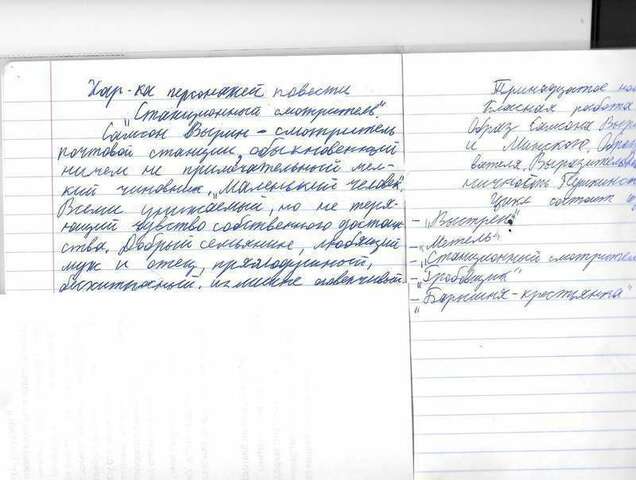 Хар-ка персонажей повести
"Станционный смотритель"
Самсон Вырин - смотритель
почтовой станции, обыкновенный
ничем не примечательный мел-
кий чиновник, "Маленький человек".
Всеми унижаемый, но не теря-
ющий чувство собственного достоин-
ства. Добрый семьянин, любящий
муж и отец, прямодушный,
бесхитростный, излишне доверчивый.
Тринадцатое ноя
Классная работа
Образ Самсона Выри
и Минского. Образ
вателя. Выразительн
ничность Пушкинск
Цикл состоит и
- "Выстрел"
- "Метель"
- "Станционный смотритель
- "Гробовщик"
- "Барышня-крестьянка"